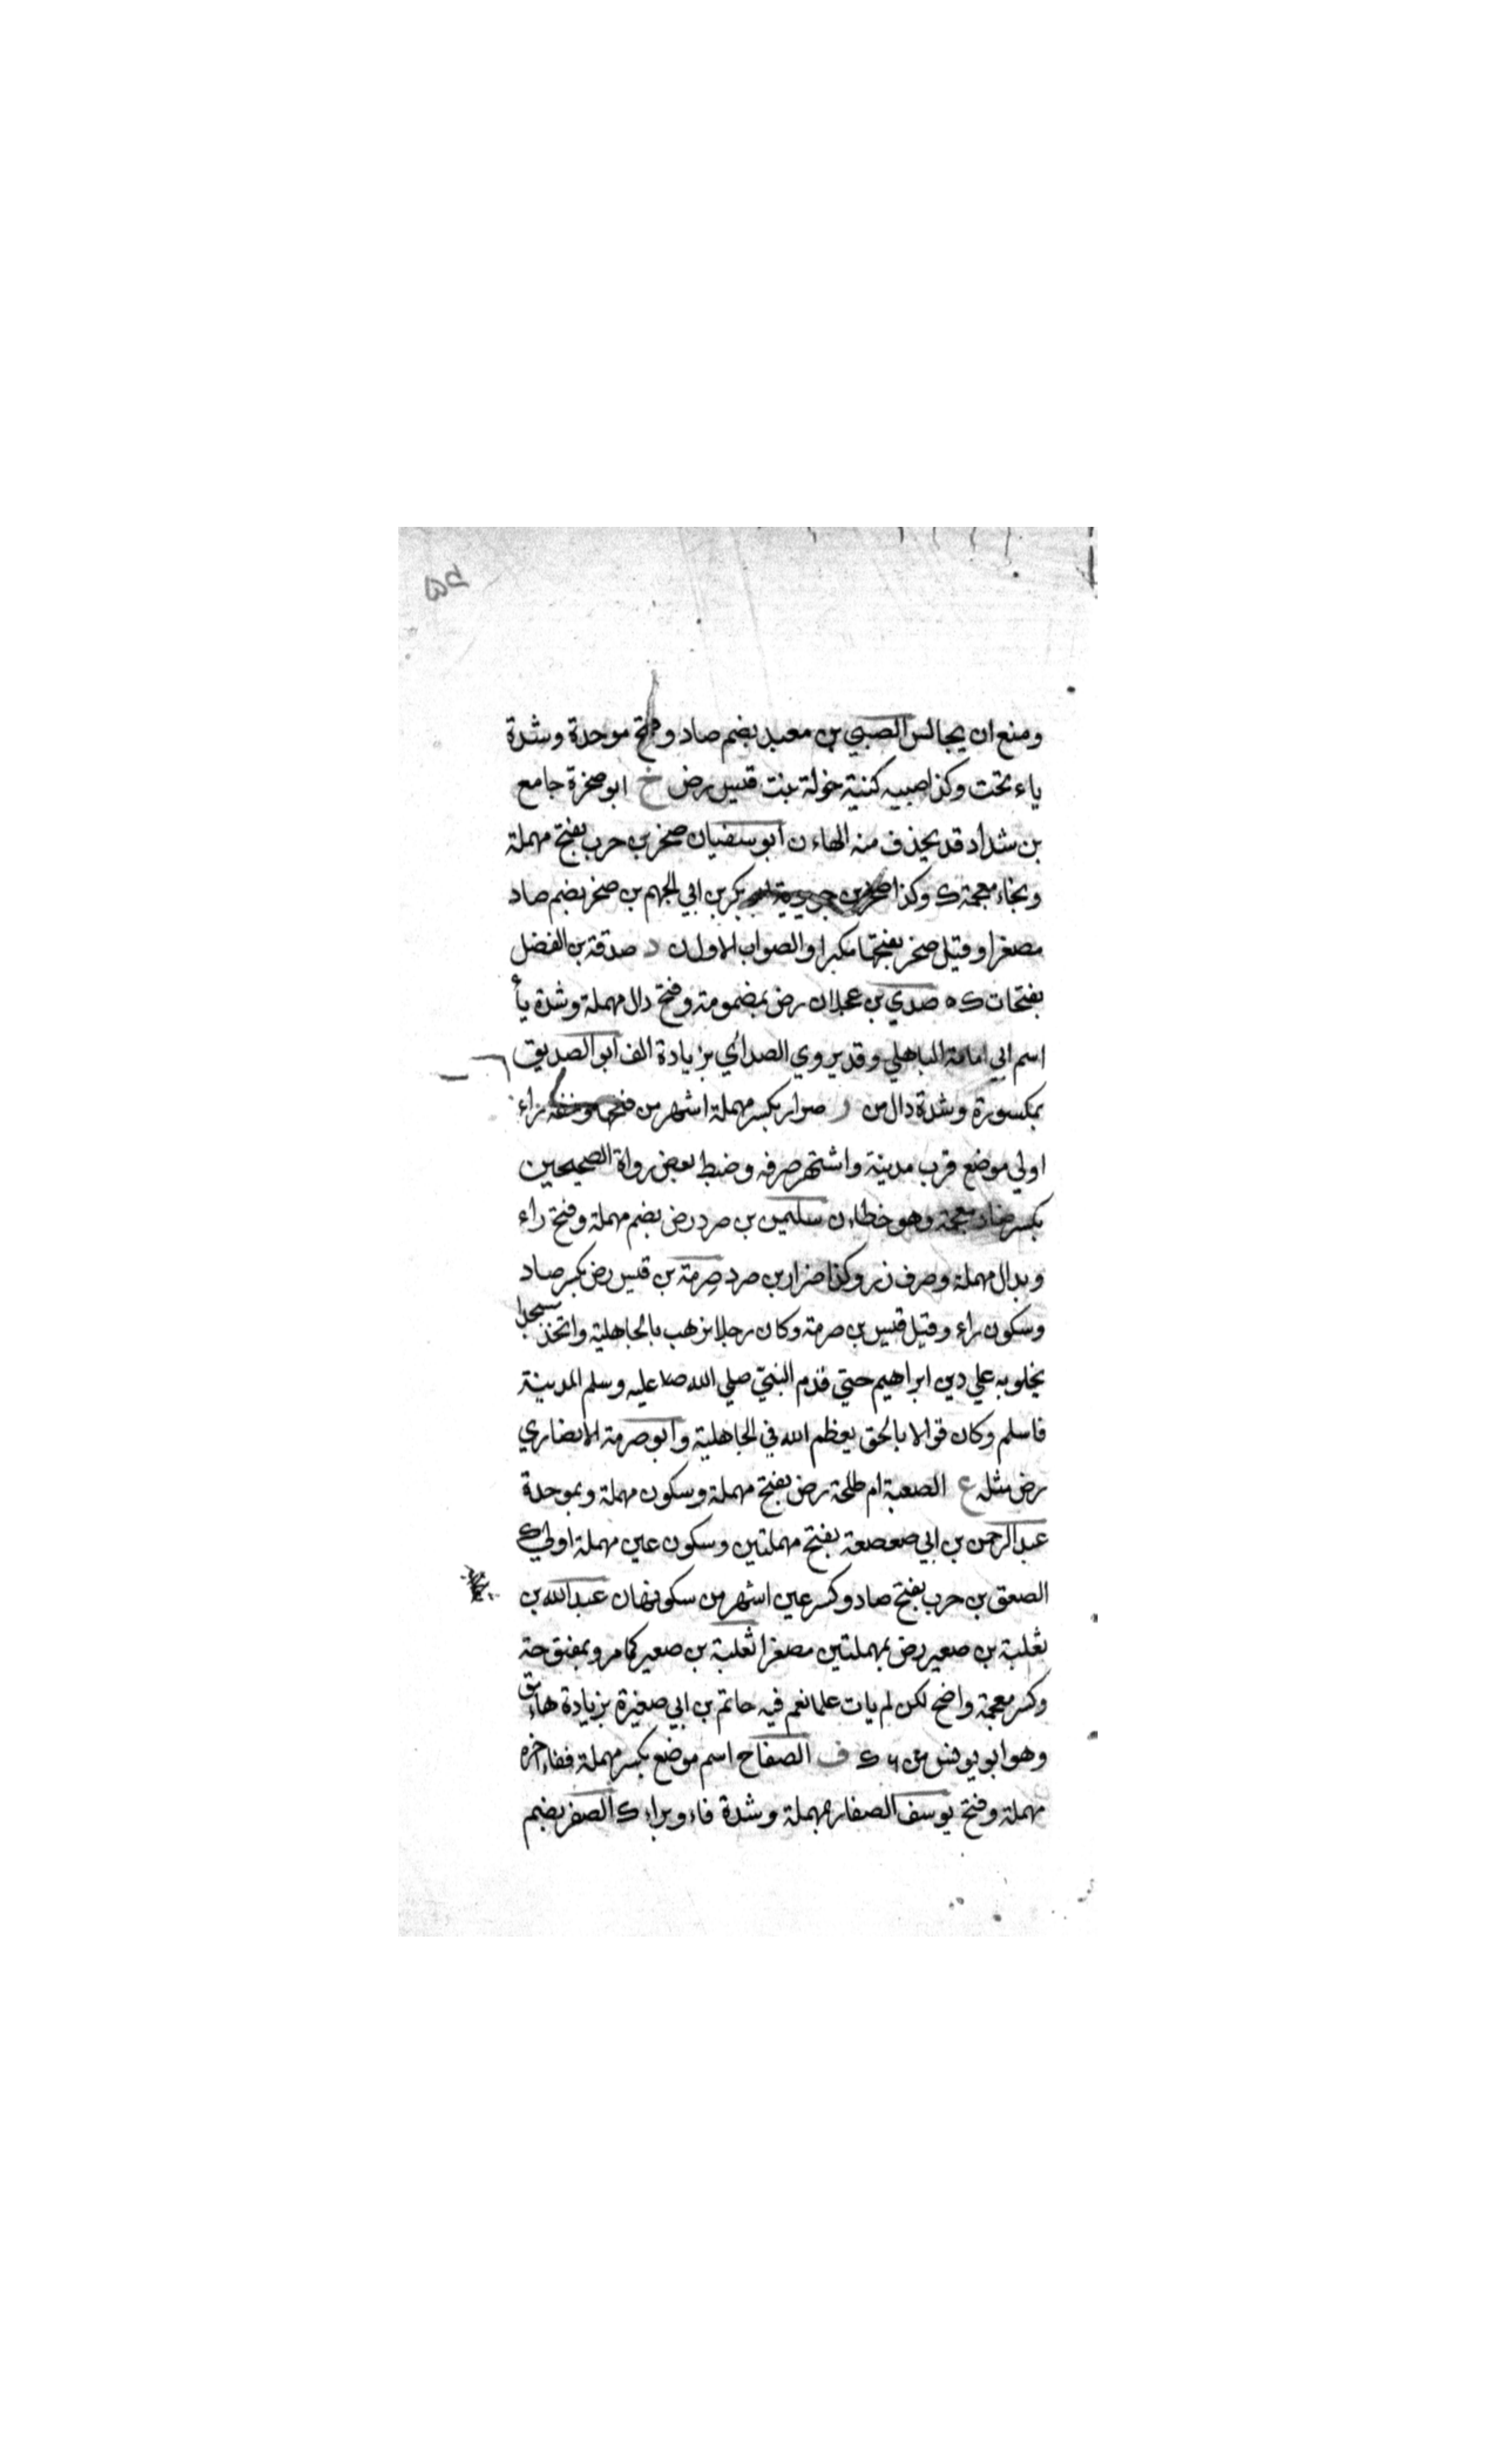 ومنع ان يجالس الصبي بن معبد بضم صاد وفتح موحدة وشدة
ياء تحت وكذا صبيه كنية خولة بنت قيس رض خ ابو صخرة جامع
بن شداد قد يحذف منه الهاء ن ابو سفيان صخر بن حرب بفتح مهملة
وبخاء معجمة ك وكذا صخر بن جويرية بكر بن ابي الجهم بن صخر بضم صاد
مصغرا وقيل صخر بفتحها مكبرا والصواب الاول ن د صدقة بن الفضل
بفتحات ك ه صدي بن عجلان رض بمضمومة وفتح دال مهملة وشدة ياء
اسم ابي امامة الباهلي وقد يروي الصدائي بزيادة الف ابو الصديق
بمكسورة وشدة دال من ر صرار بكسر مهملة اشهر من فتحها وخفة راء
اولي موضع قرب مدينة واشتهر صرفه وضبط بعض رواة الصحيحين
بكسر ضاد معجمة وهو خطاء ن سليمن بن صرد رض بضم مهملة وفتح راء
وبدال مهملة وصرف ن ر وكذا ضرار بن صرد صرمة بن قيس رض بكسر صاد
وسكون راء وقيل قيس بن صرمة وكان رجلا يزهب بالجاهلية واتخذ مسجدا
يخلو به علي دين ابراهيم حتي قدم النبي صلي الله عليه وسلم المدينة
فاسلم وكان قوالا بالحق يعظم الله في الجاهلية وابو صرمة الانصاري
رض مثله ع الصعبة ام طلحة رض بفتح مهملة وسكون مهملة وبموحدة
عبد الرحمن بن ابي صعصعة بفتح مهملتين وسكون عين مهملة اولي ك
الصعق بن حرب بفتح صاد وكسر عين اشهر من سكونها ن عبد الله بن
ثعلبة بن صعير رض بمهملتين مصغرا ثعلبة بن صعير كما مر وبمفتوحة
وكسر معجمة واضح لكن لم يات علما نعم في حاتم بن ابي صغيرة بزيادة هاء
وهو ابو يونس ك ف الصفاح اسم موضع بكسر مهملة ففاء اخره
مهملة وفتح يوسف الصفار بمهملة وشدة فاء وبراء ك الصفر بضم